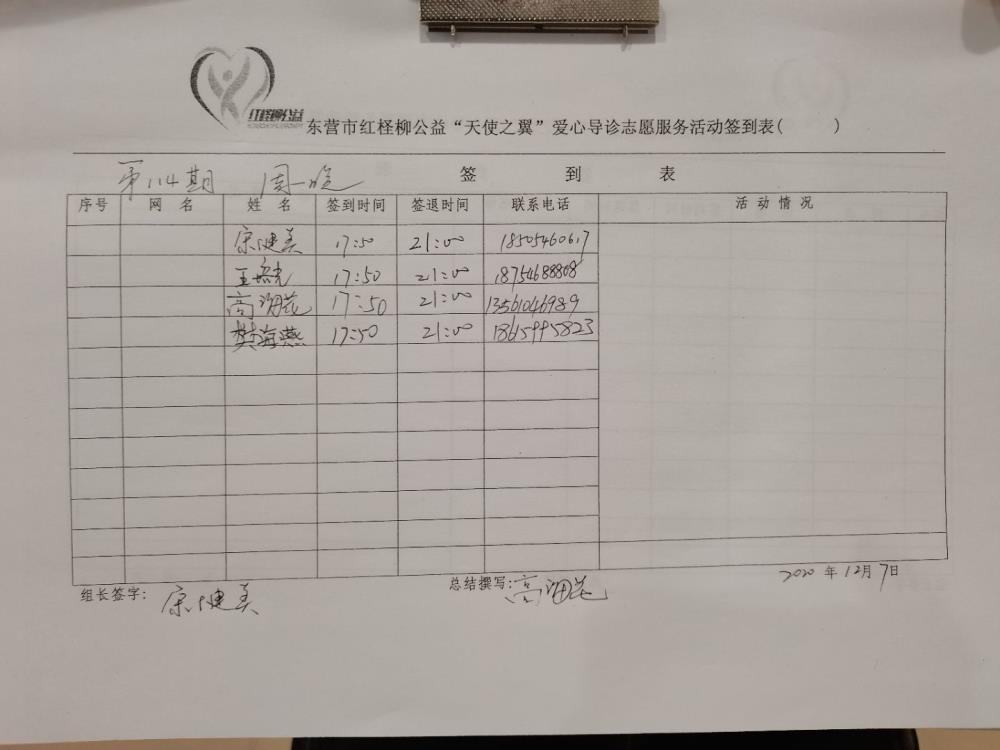 红柽柳公益
东营市红柽柳公益“天使之翼”爱心导诊志愿服务活动签到表( )
第114期 周一晚
签 到 表
序号 网 名 姓 名 签到时间 签退时间 联系电话 活 动 情 况
宋健美 17:50 21:00 18505460617
17:50 21:00 18754688808
17:50 21:00 13561046989
樊海燕 17:50 21:00 18615995823
组长签字: 宋健美 总结撰写: 2020 年 12月 7日